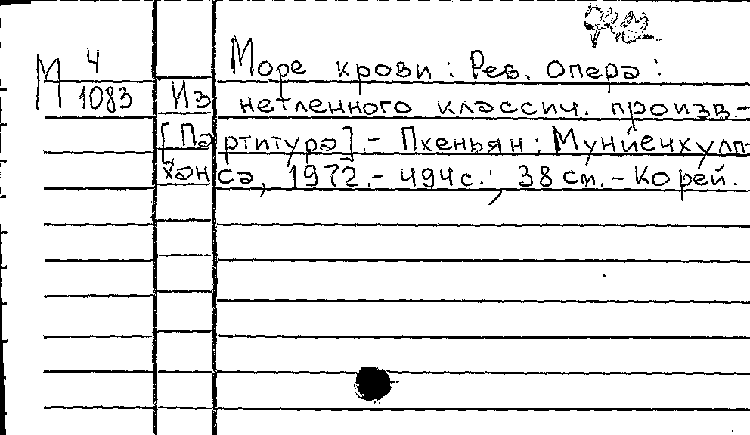 М 4
1083
Море крови : Рев. опера :
Из нетленного классич. произв-
[Партитура].- Пхеньян : Мунйечхулп
хансa, 1972.- 494 с. ; 38 см. - Корей.